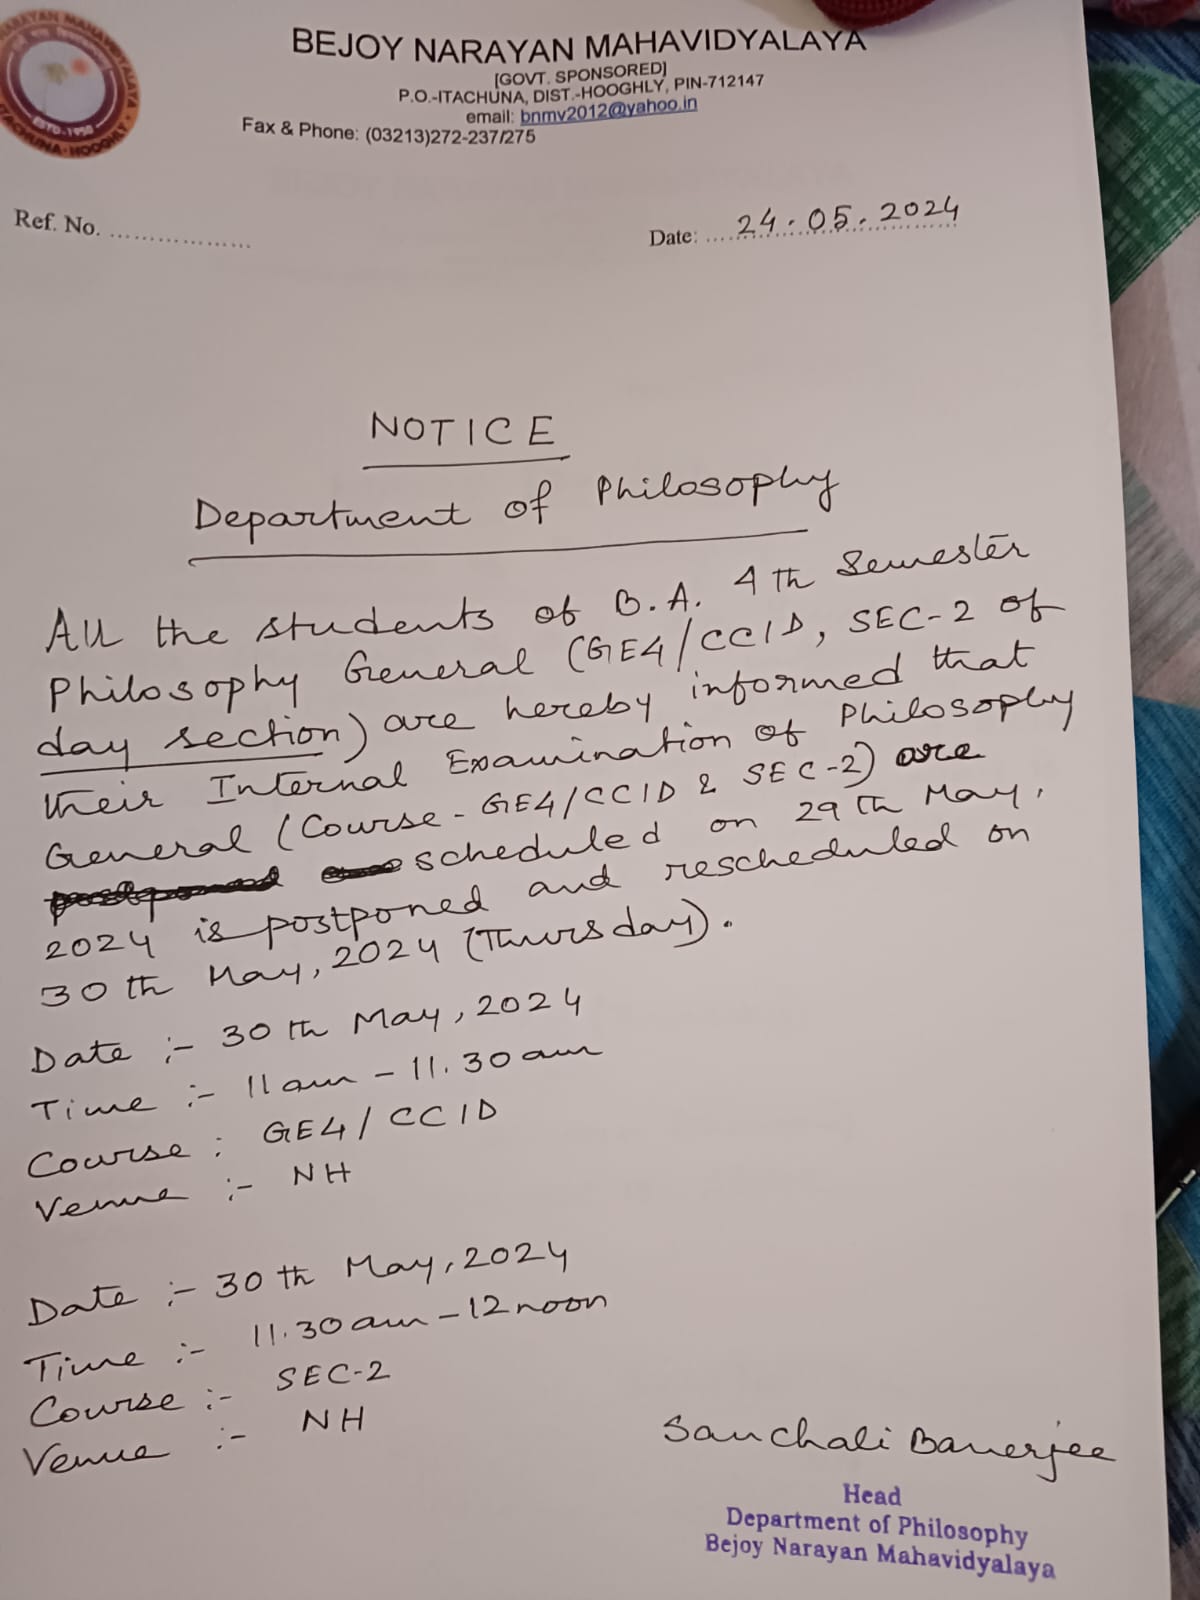 BEJOY NARAYAN MAHAVIDYALAYA
[GOVT. SPONSORED]
P.O.-ITACHUNA, DIST.-HOOGHLY, PIN-712147
email: bnmv2012@yahoo.in
Fax & Phone: (03213)272-237/275
ESTD-1950
ITACHUNA-HOOGHLY
Ref. No. ..................
Date: 24.05.2024
NOTICE
Department of Philosophy
All the students of B.A. 4th Semester
Philosophy General (GE4/CC1D, SEC-2 of
day section) are hereby informed that
their Internal Examination of Philosophy
General (Course - GE4/CC1D & SEC-2) are
scheduled on 29th May,
2024 is postponed and rescheduled on
30th May, 2024 (Thursday).
Date :- 30th May, 2024
Time :- 11am - 11.30am
Course : GE4/CC1D
Venue :- NH
Date :- 30th May, 2024
Time :- 11.30am - 12noon
Course :- SEC-2
Venue :- NH
Sanchali Banerjee
Head
Department of Philosophy
Bejoy Narayan Mahavidyalaya